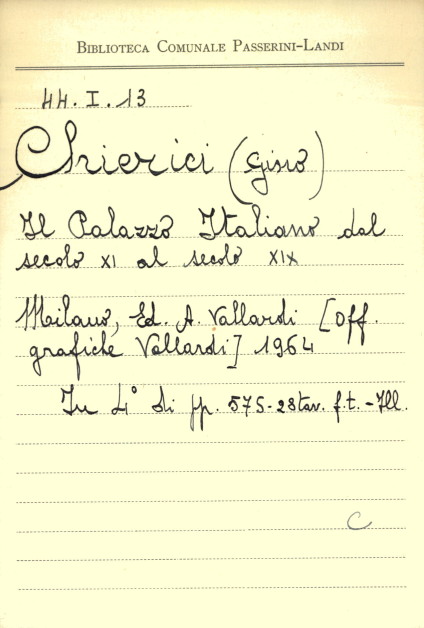 BIBLIOTECA COMUNALE PASSERINI-LANDI
44. I. 13
Chierici (Gino)
Il Palazzo Italiano dal
secolo XI al secolo XIX
Milano, Ed. A. Vallardi [Off.
grafiche Vallardi] 1964
In 4° di pp. 575-28 tav. f.t. - Ill.
C